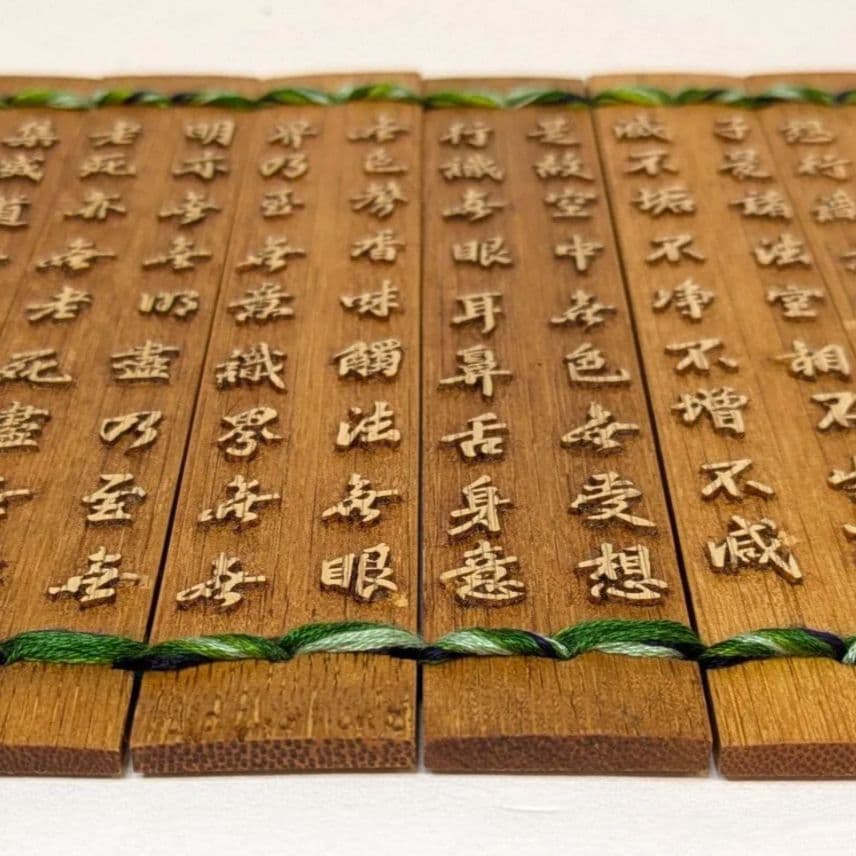 想行識
子是諸法空相不生
滅不垢不淨不增不減
是故空中無色無受想
行識無眼耳鼻舌身意
無色聲香味觸法無眼
界乃至無意識界無無
明亦無無明盡乃至無
老死亦無老死盡無
集滅道